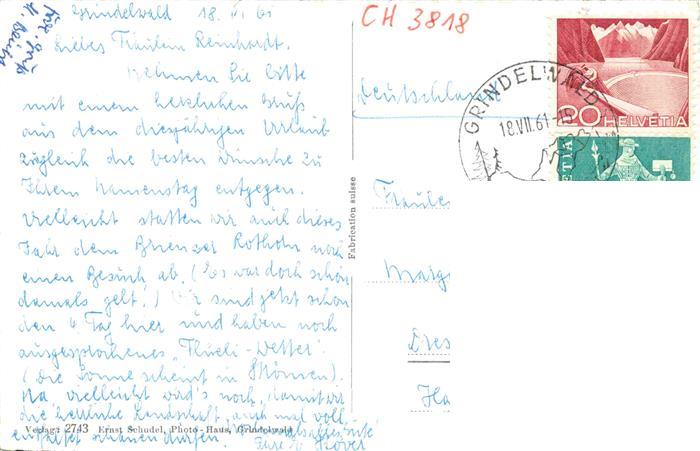 Grindelwald 18.VII.61
CH 3818
Liebes Fräulein Reinhardt.
Nehmen Sie bitte
mit einem herzlichen Gruß
aus dem diesjährigen Urlaub
zugleich die besten Wünsche zu
Ihrem Namenstag entgegen.
Vielleicht statten wir auch dieses
Jahr dem Brienzer Rothorn noch
einen Besuch ab. (Es war doch schön
damals gelt!) Wir sind jetzt schon
den 6 Tag hier und haben noch
ausgesprochenes "Thueli-Wetter".
(Die Sonne scheint in
Na, vielleicht wird's noch, damit wir
die herrliche Landschaft auch mal voll
entfaltet schauen dürfen.
Eure
Verlag: 2743 Ernst Schudel, Photo-Haus, Grindelwald
Fabrication suisse
Deutschland
GRINDELWALD
18.VII.61-15
20 HELVETIA
Fräulei
Marg
Dres
Ha